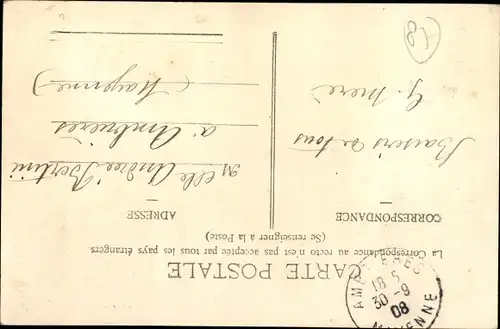 CARTE POSTALE
La Correspondance au recto n'est pas acceptée par tous les pays étrangers
(Se renseigner à la Poste)
CORRESPONDANCE
Baisers de tous
G. mère
ADRESSE
Melle Andrée Bertini
à Ambrières
(Mayenne)
18 5
30-9
08